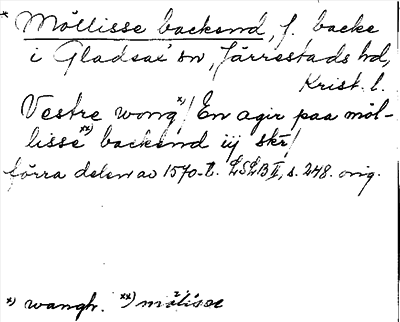 * Möllisse backend, f. backe
i Gladsax sn, Järrestads hd,
Krist. l.
Vestre wong *)! En agir paa möl-
lisse **) backend iij skr!
förra delen av 1570-t. LSLB II, s. 248. orig.
*) wangh. **) mölisse